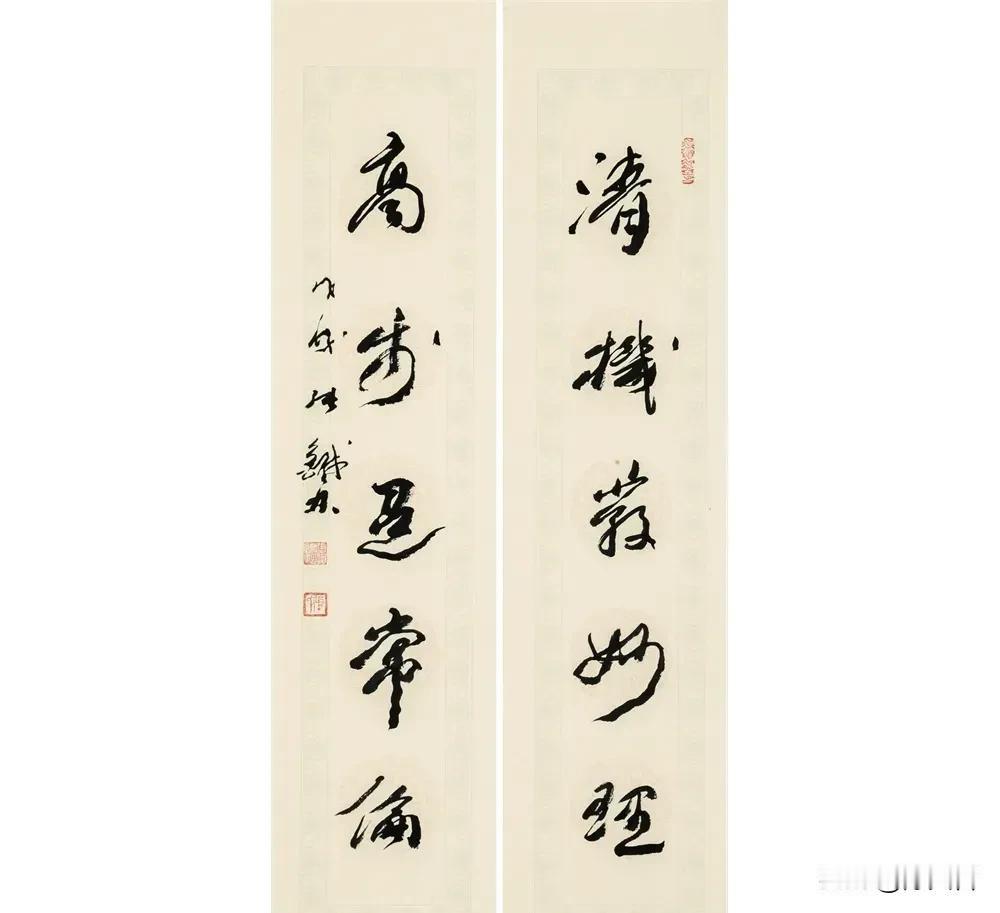 清機發妙理
高步超常倫
戊戌張鐵林